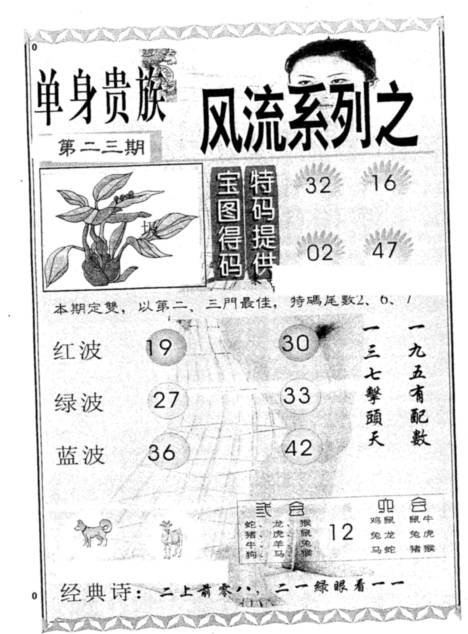 0
0
单身贵族
风流系列之
第二三期
宝图得码
特码提供
32 16
02 47
本期定雙，以第二、三門最佳，特碼尾數2、6、
红波 19 30
绿波 27 33
蓝波 36 42
一九五有配數
一三七擊頭天
合
蛇、龙、猴
猪、虎、鼠
牛、羊、兔
狗、马、猴
12
六合
鸡鼠 鼠牛
兔龙 兔虎
马蛇 猪猴
经典诗：二上前零八，二一綠眼看一一
0
0